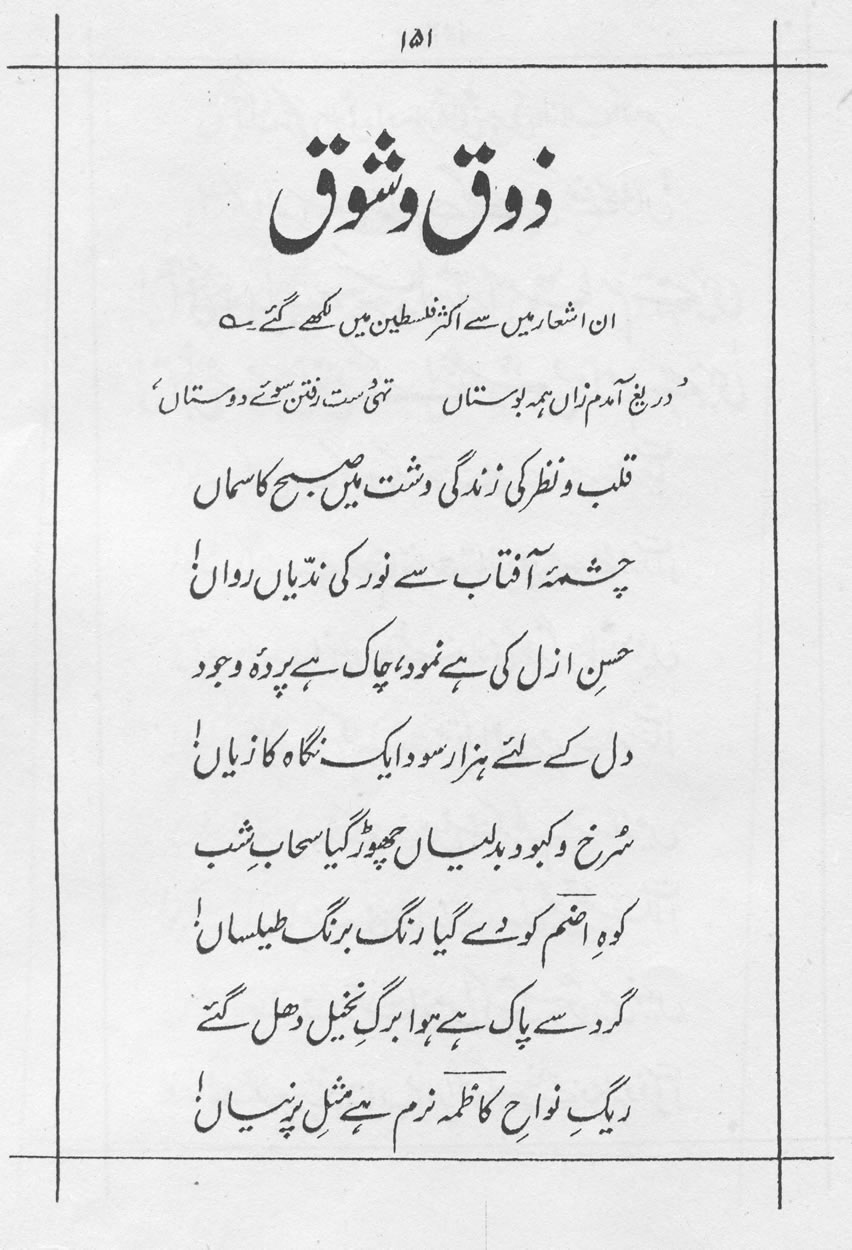 ۱۵۱
ذوق و شوق
ان اشعار میں سے اکثر فلسطین میں لکھے گئے ۔
’دریغ آمدم زاں ہمہ بوستاں تہی دست رفتن سوئے دوستاں‘
قلب و نظر کی زندگی دشت میں صبح کا سماں
چشمۂ آفتاب سے نور کی ندّیاں رواں!
حسنِ ازل کی ہے نمود، چاک ہے پردۂ وجود
دل کے لئے ہزار سود ایک نگاہ کا زیاں!
سُرخ و کبود بدلیاں چھوڑ گیا سحابِ شب
کوہِ اضم کو دے گیا رنگ برنگ طیلساں!
گرد سے پاک ہے ہوا برگِ نخیل دھل گئے
ریگِ نواحِ کاظمہ نرم ہے مثلِ پرنیاں!